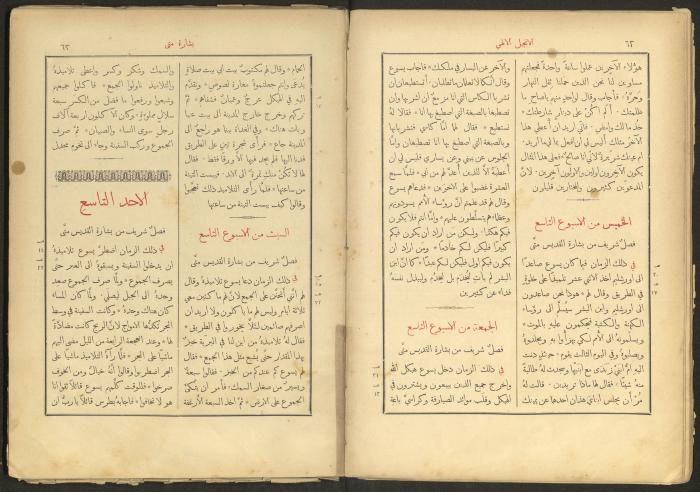 ٦٢
الانجيل الالهي
هؤلاء الآخرين عملوا ساعة واحدة فجعلتهم
مساوين لنا نحن الذين حملنا ثقل النهار
وحرّه * فأجاب وقال لواحد منهم يا صاح ما
ظلمتك * ألم اكن على دينار شارطتك *
خذ ما لك وامضِ * فاني اريد أنْ أُعطي هذا
الآخر مثلك أليس لي ان افعل بما لي ما اريد *
ام عينك شريرة لأنّي انا صالح * فعلى هذا المثال
يكون الآخرون اولين والاولون آخرين * لأنّ
المدعوين كثيرون والمختارين قليلون
الخميس من الاسبوع التاسع
فصلٌ شريف من بشارة القديس متّى
في ذلك الزمان فيما كان يسوع صاعداً
الى اورشليم اخذ الاثني عشر تلميذاً على خلوةٍ
في الطريق وقال لهم * هوذا نحن صاعدون
الى اورشليم وابن البشر سيسلّم الى رؤساء
الكهنة والكتبة فيحكمون عليه بالموت *
ويسلّمونه الى الأمم لكي يهزأوا به ويجلدوهُ
ويصلبوهُ وفي اليوم الثالث يقوم * حينئذٍ دنت
اليه أمّ ابني زبدى مع ابنيها وسجدت لهُ طالبة
منه شيئاً * فقال لها ماذا تريدين * قالت لهُ
مُرْ أن يجلس ابناي هذان احدهما عن يمينك
والآخر عن اليسار في ملكك * فأجاب يسوع
وقال انّكما لا تعلمان ما تطلبان * أتستطيعان ان
تشربا الكاس التي انا مزمعٌ ان اشربها وان
تصطبغا بالصبغة التي اصطبغ بها انا * فقالا لهُ
نستطيع * فقال لهما أمّا كاسي فتشربانها
وبالصبغة التي اصطبغ بها انا تصطبغان وامّا
الجلوس عن يميني وعن يساري فليس لي ان
أعطيهُ الّا للذين أُعدّ لهم من أبي * فلما سمع
العشرة غضبوا على الاخوين * فدعاهم يسوع
وقال لهم قد علمتم أنّ رؤساء الأمم يسودونهم
وعظماءهم يتسلّطون عليهم * وامّا انتم فلا يكون
فيكم هكذا * ولكن من اراد ان يكون فيكم
كبيراً فليكن لكم خادماً * ومن اراد ان
يكون فيكم اول فليكن لكم عبداً * كما أنّ ابن
البشر لم يأتِ ليُخدَم بل ليَخدُم وليبذل نفسهُ
فداء عن كثيرين
الجمعة من الاسبوع التاسع
فصلٌ شريف من بشارة القديس متّى
في ذلك الزمان دخل يسوع هيكل الله
واخرج جميع الذين يبيعون ويشترون في
الهيكل وقلب موائد الصيارفة وكراسيّ باعة
بشارة متى
٦٣
الحمام * وقال لهم مكتوبٌ بيتي بيت صلاةٍ
يدعى وانتم جعلتموهُ مغارة لصوصٍ * وتقدّم
اليه في الهيكل عرجٌ وعميانٌ فشفاهم * ثمّ
تركهم وخرج خارج المدينة الى بيت عنيا
وبات هناك * وفي الغداة بينا هو راجعٌ الى
المدينة جاع * فرأى شجرة تينٍ على الطريق
فدنا اليها فلم يجد فيها الّا ورقاً فقط * فقال
لها لا تكنْ منكِ ثمرةٌ الى الابد * فيبست التينة
من ساعتها * فلمّا رأى التلاميذ ذلك تعجّبوا
وقالوا كيف يبست التينة من ساعتها
السبت من الاسبوع التاسع
فصلٌ شريف من بشارة القديس متّى
في ذلك الزمان دعا يسوع تلاميذهُ وقال
لهم انّي أتحنّن على الجمع لأنّ لهم ما كثين معي
ثلاثة ايام وليس لهم ما ياكلون ولا اريد ان
اصرفهم صائمين لئلّا يخوروا في الطريق *
فقال لهُ تلاميذهُ من اين لنا في البرية خبزٌ
بهذا المقدار حتّى يشبع مثل هذا الجمع * فقال
لهم يسوع كم عندكم من الخبز * فقالوا سبعةٌ
ويسيرٌ من صغار السمك * فأمر ان يتّكئ
الجموع على الارض * ثمّ اخذ السبعة الأرغفة
والسمك وشكر وكسر واعطى تلاميذهُ
والتلاميذ ناولوا الجموع * فاكلوا جميعهم
وشبعوا ورفعوا ما فضل من الكسر سبعة
سلالٍ مملوءةٍ * وكان الآكلون اربعة آلاف
رجلٍ سوى النساء والصبيان * ثمّ صرف
الجموع وركب السفينة وجاء الى تخوم مجدل
الاحد التاسع
فصلٌ شريف من بشارة القديس متّى
في ذلك الزمان اضطرّ يسوع تلاميذهُ
ان يدخلوا السفينة ويسبقوهُ الى العبر حتّى
يصرف الجموع * ولمّا صرف الجموع صعد
وحدهُ الى الجبل ليصلّي * ولمّا كان المساء
كان هناك وحدهُ * وكانت السفينة في وسط
البحر تكدّها الامواج لأنّ الريح كانت مضادّةً
لها * وعند الهجعة الرابعة من الليل مضى اليهم
ماشياً على البحر * فلمّا رآهُ التلاميذ ماشياً على
البحر اضطربوا وقالوا انّهُ خيالٌ ومن الخوف
صرخوا * فللوقت كلّمهم يسوع قائلاً ثقوا انا
هو لا تخافوا * فأجابهُ بطرس قائلاً يا ربّ ان